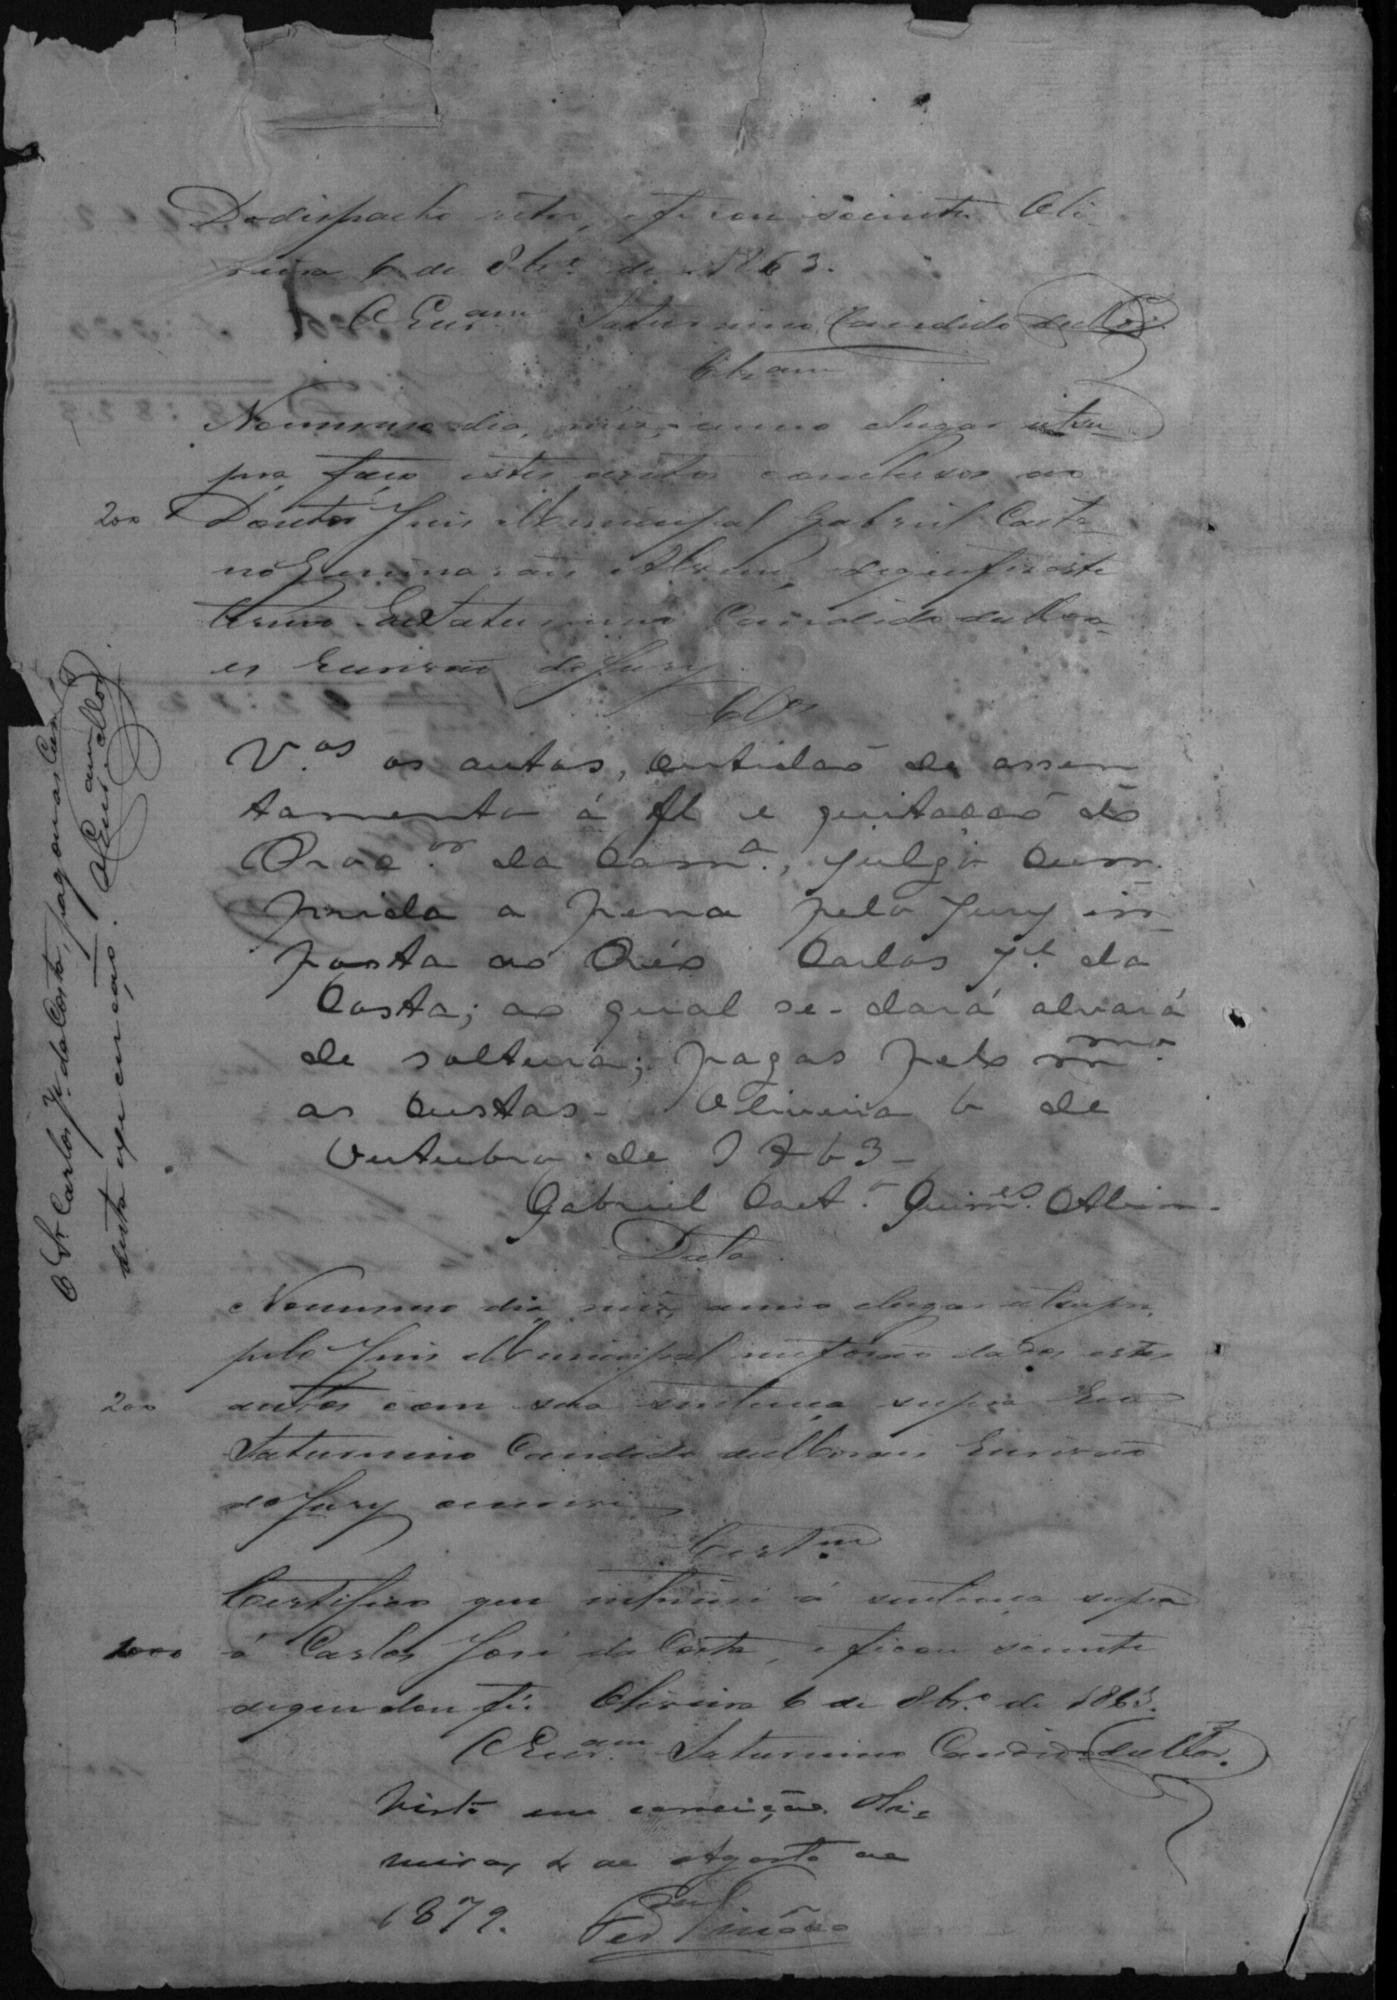 Do despacho retro, e ficou sciente Oli-
veira 6 de 8br.º de 1863.
O Escr.am Saturnino Candido de Mor.
Clz.am
No mesmo dia, mez, anno e lugar utsu-
pra faço estes autos conclusos ao
200 Doutor Juis Municipal Gabriel Caeta-
no Guimarães e Abreu, do que fiz este
termo. Eu Saturnino Candido de Mora-
es Escrivão do Jury
Clos
V.os os autos, certidão de assen
tamento á fl e quitação do
Proc.or da Cam.a, julgo cum
prida a pena pelo Jury im
posta ao Réo Carlos Jé. da
Costa; ao qual se-dará alvará
de soltura; pagas pelo mmo.
as custas. Oliveira 6 de
Outubro de 1863-
Gabriel Caet.º Guim.es
Data
No mesmo dia, mez, anno e lugar utsupra,
pelo Juis Municipal me forão dados estes
200 autos com sua sentença supra Eu
Saturnino Candido de Moraes Escrivão
do Jury escrevi
Cert.m
Certifico que intimei á sentença supra
1000 á Carlos José da Costa, e ficou sciente
do que dou fé. Oliveira 6 de 8br.º de 1863.
O Escr.am Saturnino Candido de Mor.
Visto em correição. Oli-
veira, de Agosto de
1879.
O Sr. Carlos Jé. da Costa, pagou as Custas
desta execução. O Escr.am de Mor.